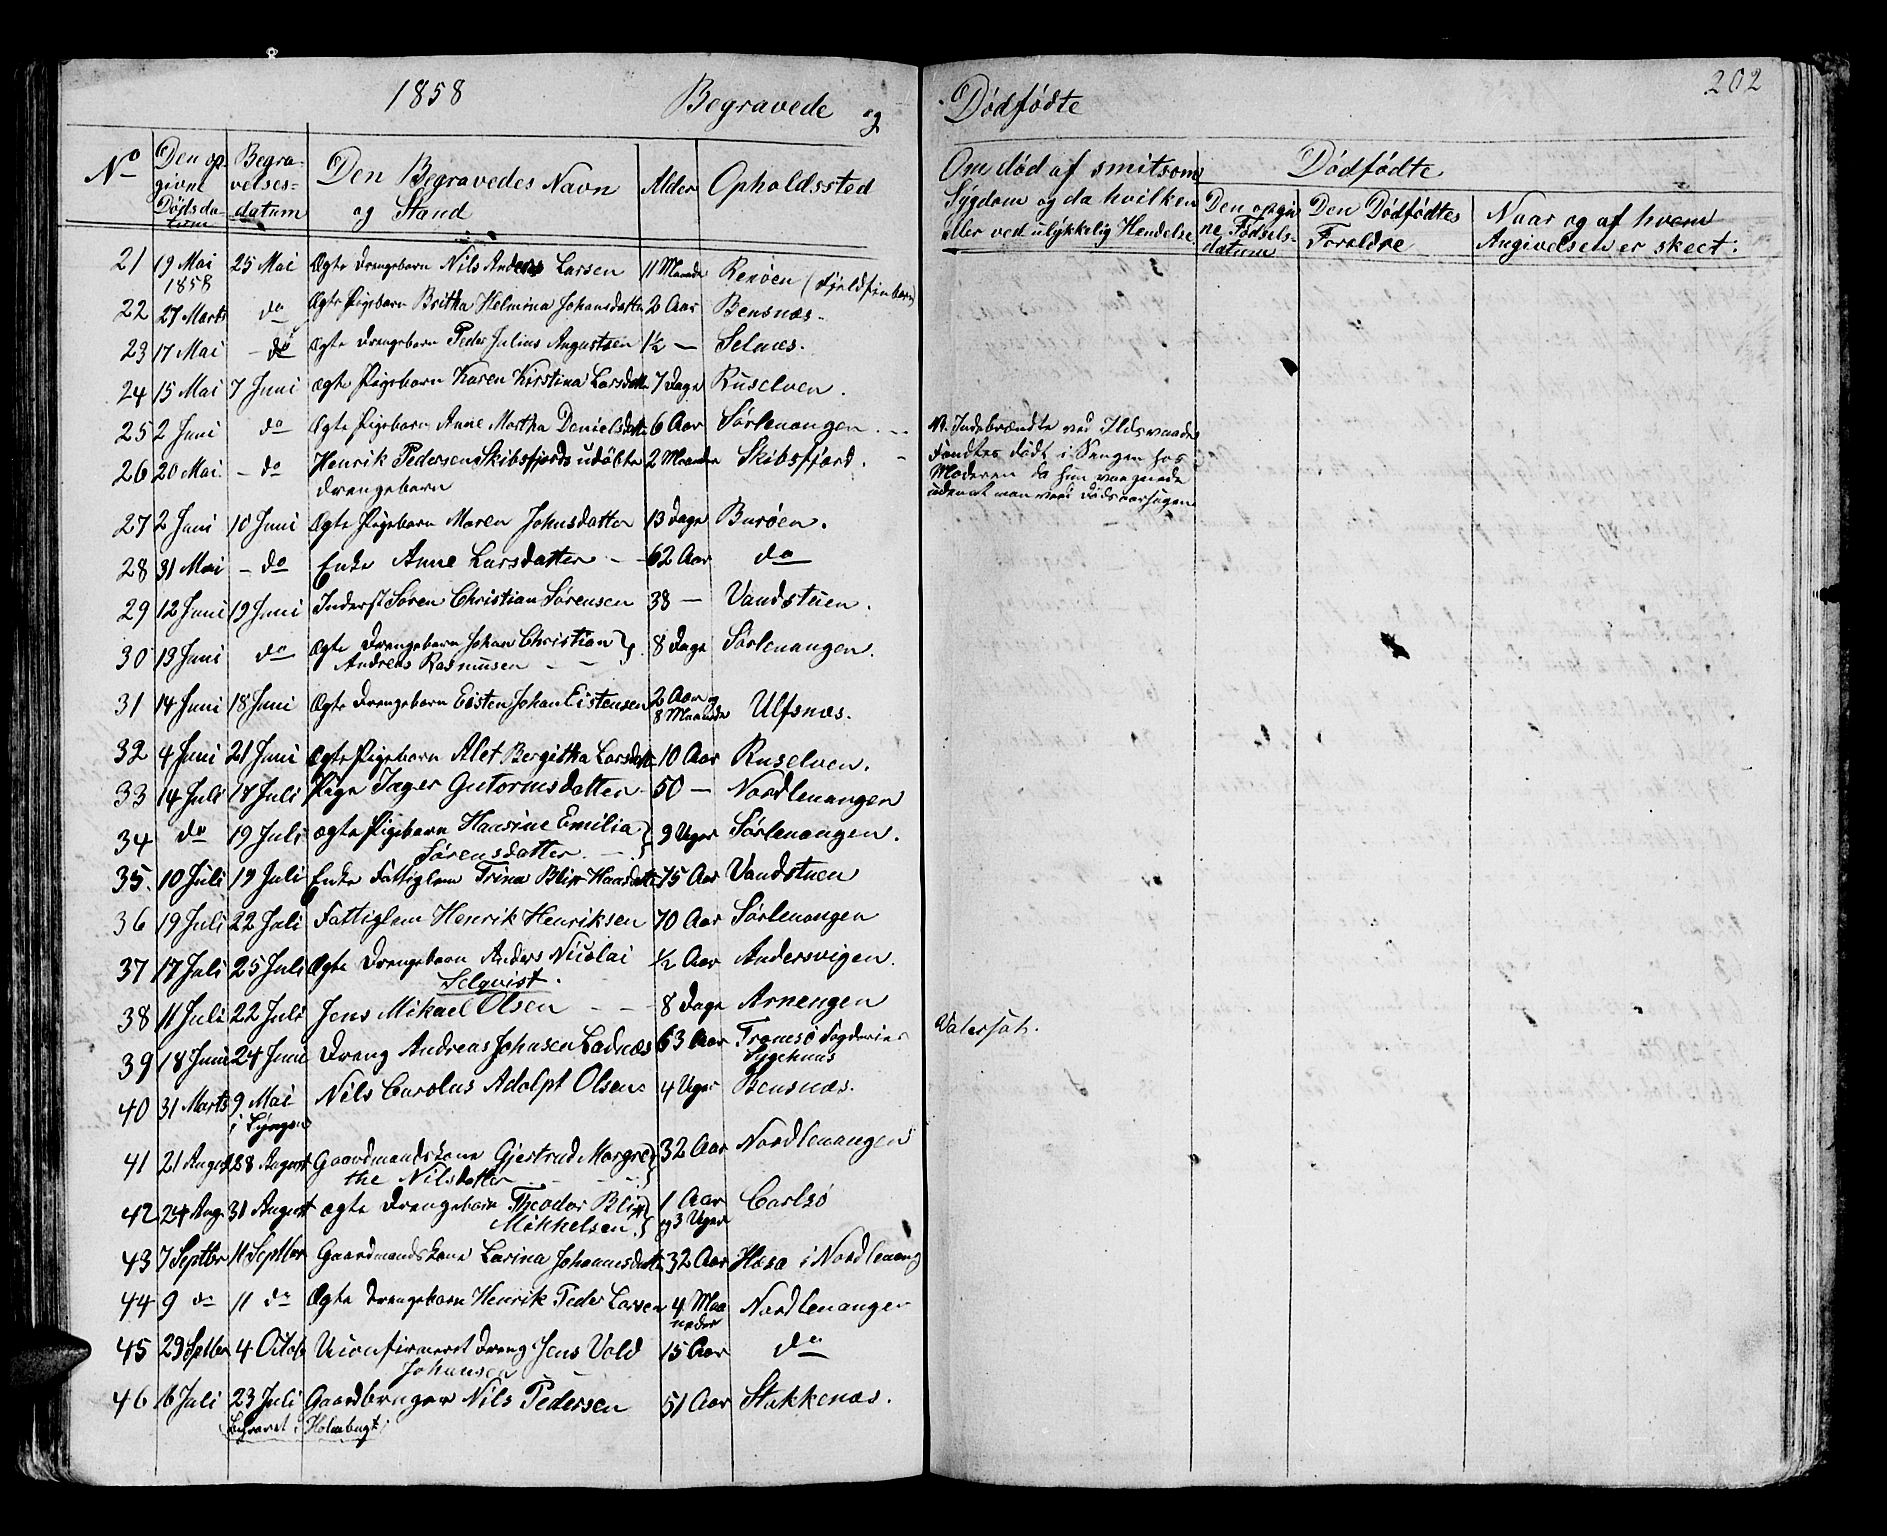 1858 Begravede og Dödfödte 202
No Den opgivne Dödsdatum Begravelsesdatum Den Begravedes Navn og Stand Alder Opholdssted Om död af smitsom Sygdom og da hvilken eller ved ulykkelig Hendelse Dödfödte
Den opgivne Födselsdatum Den Dödfödtes Foreldre Naar og af hvem Angivelsen er skeet:
21 19 Mai 1858 25 Mai Ægte Drengebarn Nils Anders Larsen 11 Maaneder Renöen (Fjeldfinbarn)
22 27 Marts do Ægte Pigebarn Britha Helmina Johansdatter 2 Aar Bensnæs.
23 17 Mai - do Ægte Drengebarn Peder Julius Augustsen 1½ — Selnæs.
24 15 Mai 7 Juni Ægte Pigebarn Karen Kirstina Larsdatter 7 Dage Ruselven.
25 2 Juni do Ægte Pigebarn Anne Martha Danielsdatter 6 Aar Sörlenangen. Indebrændte ved Ildsvaade
26 20 Mai. - do Henrik Pedersen Skibsfjords udöbte 2 Maaneder Skibsfjord. Fandtes dödt i Sengen hos
Drengebarn Moderen da hun vaagnede
udenat man veed Dödsaarsagen
27 2 Juni 10 Juni Ægte Pigebarn Maren Johnsdatter 13 Dage Buröen.
28 31 Mai - do Enke Anne Larsdatter 62 Aar do
29 12 Juni 19 Juni Inderst Sören Christian Sörensen 38 — Vandstuen.
30 13 Juni do Ægte Drengebarn Johan Christian
Andreas Rasmusen 8 Dage Sörlenangen.
31 14 Juni 18 Juni Ægte Drengebarn Eisten Johan Eistensen 2 Aar og 8 Maaneder Ulfsnæs.
32 4 Juni 21 Juni Ægte Pigebarn Alet Bergitha Larsdatt 10 Aar Ruselven.
33 14 Juli 17 Juli Pige Inger Gutormsdatter 50 — Nordlenangen
34 do 19 Juli Ægte Pigebarn Hansine Emilia
Sörensdatter 9 Uger Sörlenangen.
35. 10 Juli 19 Juli Enke Fattiglem Trina Blix Hansdatt 75 Aar Vandstuen
36 19 Juli 22 Juli Fattiglem Henrik Henriksen 70 Aar Sörlenangen
37 17 Juli 25 Juli Ægte Drengebarn Anders Nicolai
Selqvist. ½ Aar Andersvigen.
38 11 Juli 22 Juli Jens Mikael Olsen 8 Dage Arnengen
39 18 Juni 24 Juni Dreng Andreas Johnsen Ladnæs 63 Aar Tromsö Fogderies Sygehuus Vatersot.
40 31 Marts 9 Mai i Lyngen Nils Carolus Adolph Olsen 4 Uger Bensnæs.
41 21 August 28 August Gaardmandskone Gjertrud Margre
the Nilsdatter 32 Aar Nordlenangen
42 24 Aug. 31 August Ægte Drengebarn Theodor Blix
Mikkelsen. 1 Aar og 3 Uger Carlsö
43 7 Septbr 11 Septbr Gaardmandskone Larina Johannesdatt 32 Aar i Nordlenang
44 9 do 11 do Ægte Drengebarn Henrik Peder Larsen 4 Maaneder Nordlenangen
45 29 Septbr 4 Octobr Uconfirmeret Dreng Jens Vold
Johansen 15 Aar do
46 16 Juli 23 Juli Gaardbruger Nils Pedersen 51 Aar Stakkenæs.
(Begravet i Holmbugt)